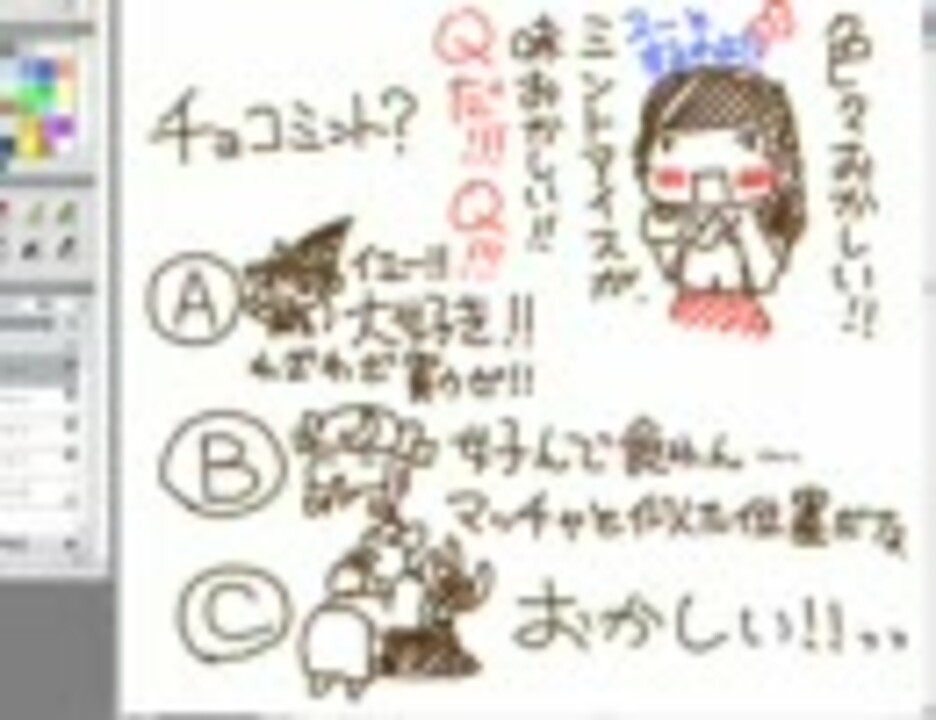 色々おかしい!!
ミントアイスが、
味おかしい!!
Qだ!!! Q!!
チョコミント?
A
イエー!!
大好き!!
わざわざ買うぜ!!
B
好んで食わんー
マッチャと似た位置だな
C
おかしい!!..